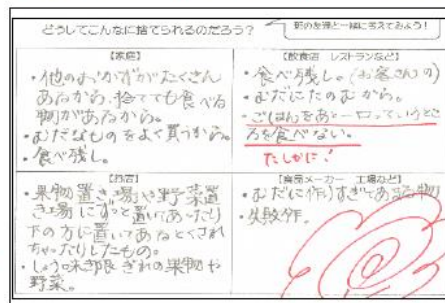 どうしてこんなに捨てられるのだろう？
班の友達と一緒に考えてみよう！
【家庭】
・他のおかずがたくさん
あるから、捨てても食べる
物があるから。
・むだなものをよく買うから。
・食べ残し。
【飲食店 レストランなど】
・食べ残し。(お客さんの)
・むだにたのむから。
・ごはんをあと一口っていうとこ
ろを食べない。
たしかに！
【お店】
・果物置き場や野菜置
き場にずっと置いてあったり
下の方に置いてあるとくされ
ちゃったりしたもの。
・しょう味期限ぎれの果物や
野菜。
【食品メーカー 工場など】
・むだに作りすぎてある物
・失敗作。